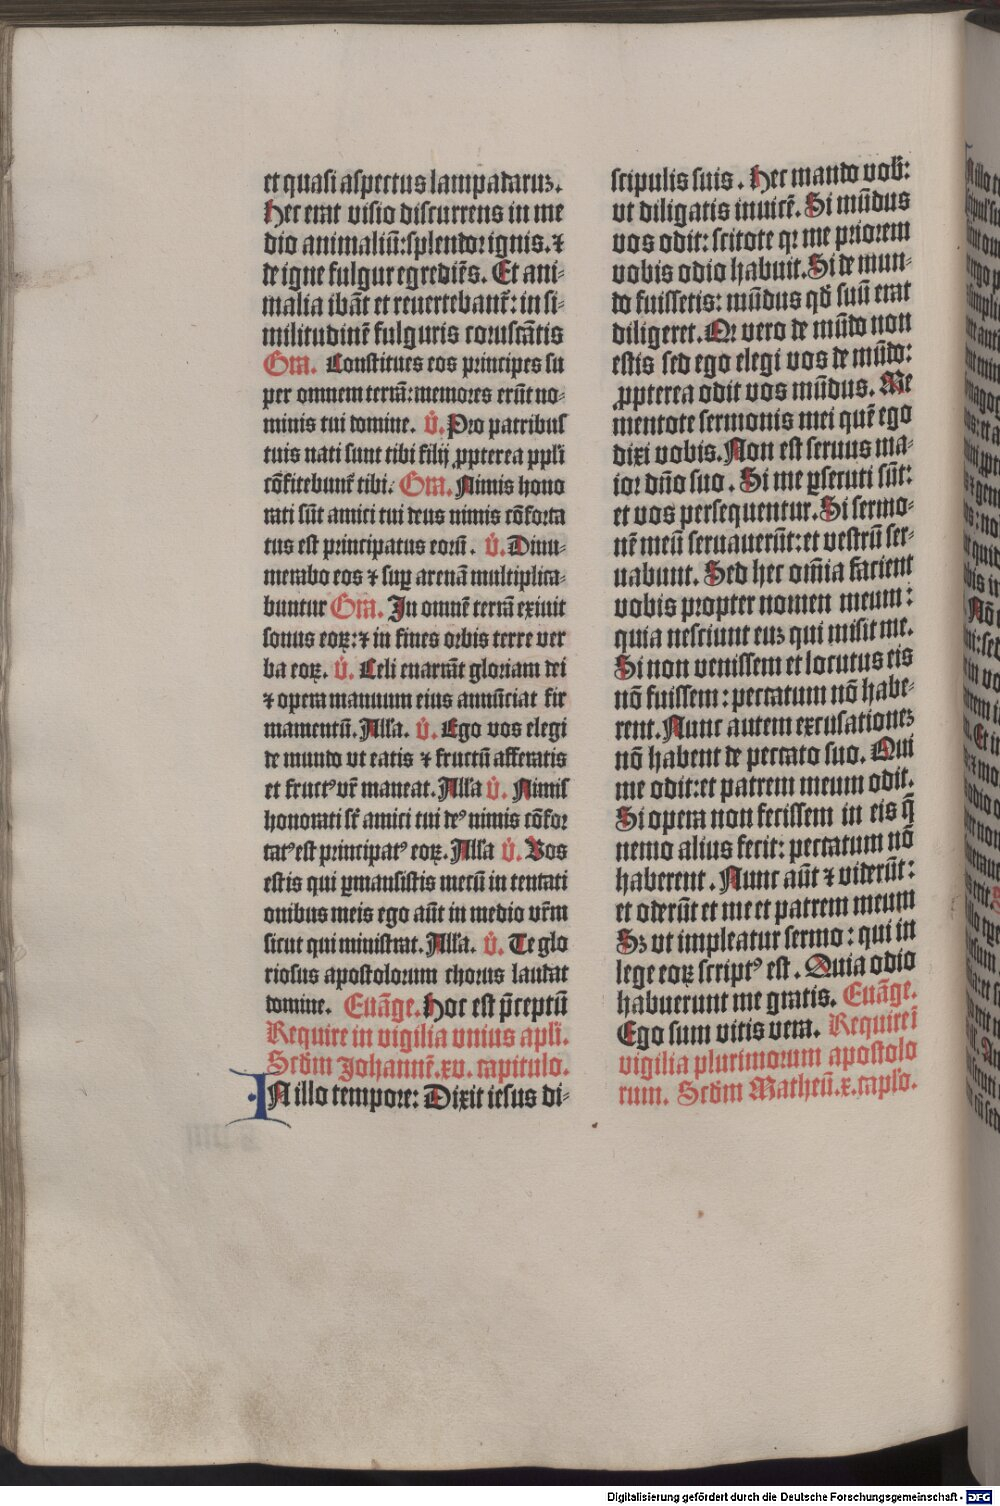 et quasi aspectus lampadaruꝫ.
Hec erat visio discurrens in me
dio animaliū: splendor ignis. ⁊
de igne fulgur egrediēs. Et ani-
malia ibāt et reuertebant᷑: in si-
militudinē fulguris coruscātis
Gra. Constitues eos principes su
per omnem terrā: memores erūt no-
minis tui domine. V̊. Pro patribus
tuis nati sunt tibi filij ꝓpterea ppl̄i
cōfitebunt᷑ tibi. Gra. Nimis hono
rati sūt amici tui deus nimis cōforta
tus est principatus eorū. V̊. Dinu-
merabo eos ⁊ suꝑ arenā multiplica-
buntur Gra. In omnē terrā exiuit
sonus eoꝝ: ⁊ in fines orbis terre ver
ba eoꝝ. V̊. Celi enarrāt gloriam dei
⁊ opera manuum eius annūciat fir
mamentū. Alla. V̊. Ego vos elegi
de mundo vt eatis ⁊ fructū afferatis
et fructꝰ vr̄ maneat. Alla V̊. Nimis
honorati st̄ amici tui deꝰ nimis cōfor
tatꝰ est principatꝰ eoꝝ. Alla V̊. Vos
estis qui ꝑmansistis mecū in tentati
onibus meis ego aūt in medio vr̄m
sicut qui ministrat. Alla. V̊. Te glo
riosus apostolorum chorus laudat
domine. Euāge. Hoc est p̄ceptū
Require in vigilia vnius apl̄i.
Scd̄m Johannē. xv. capitulo.
IN illo tempore: Dixit iesus di-
scipulis suis. Hec mando vob̄:
vt diligatis inuicē. Si mūdus
vos odit: scitote qꝛ me priorem
vobis odio habuit. Si de mun-
do fuissetis: mūdus qd̄ suū erat
diligeret. Qꝛ vero de mūdo non
estis sed ego elegi vos de mūdo:
ꝓpterea odit vos mūdus. Me
mentote sermonis mei quē ego
dixi vobis. Non est seruus ma-
ior dn̄o suo. Si me ꝑsecuti sūt:
et vos persequentur. Si sermo-
nē meū seruauerūt: et vestrū ser-
uabunt. Sed hec om̄ia facient
vobis propter nomen meum:
quia nesciunt euꝫ qui misit me.
Si non venissem et locutus eis
nō fuissem: peccatum nō habe-
rent. Nunc autem excusationeꝫ
nō habent de peccato suo. Qui
me odit: et patrem meum odit.
Si opera non fecissem in eis q̄
nemo alius fecit: peccatum nō
haberent. Nunc aūt ⁊ viderūt:
et oderūt et me et patrem meum
Sꝫ vt impleatur sermo: qui in
lege eoꝝ scriptꝰ est. Quia odio
habuerunt me gratis. Euāge.
Ego sum vitis vera. Require ī
vigilia plurimorum apostolo
rum. Scd̄m Matheū. x. capl̄o.
Digitalisierung gefördert durch die Deutsche Forschungsgemeinschaft - DFG